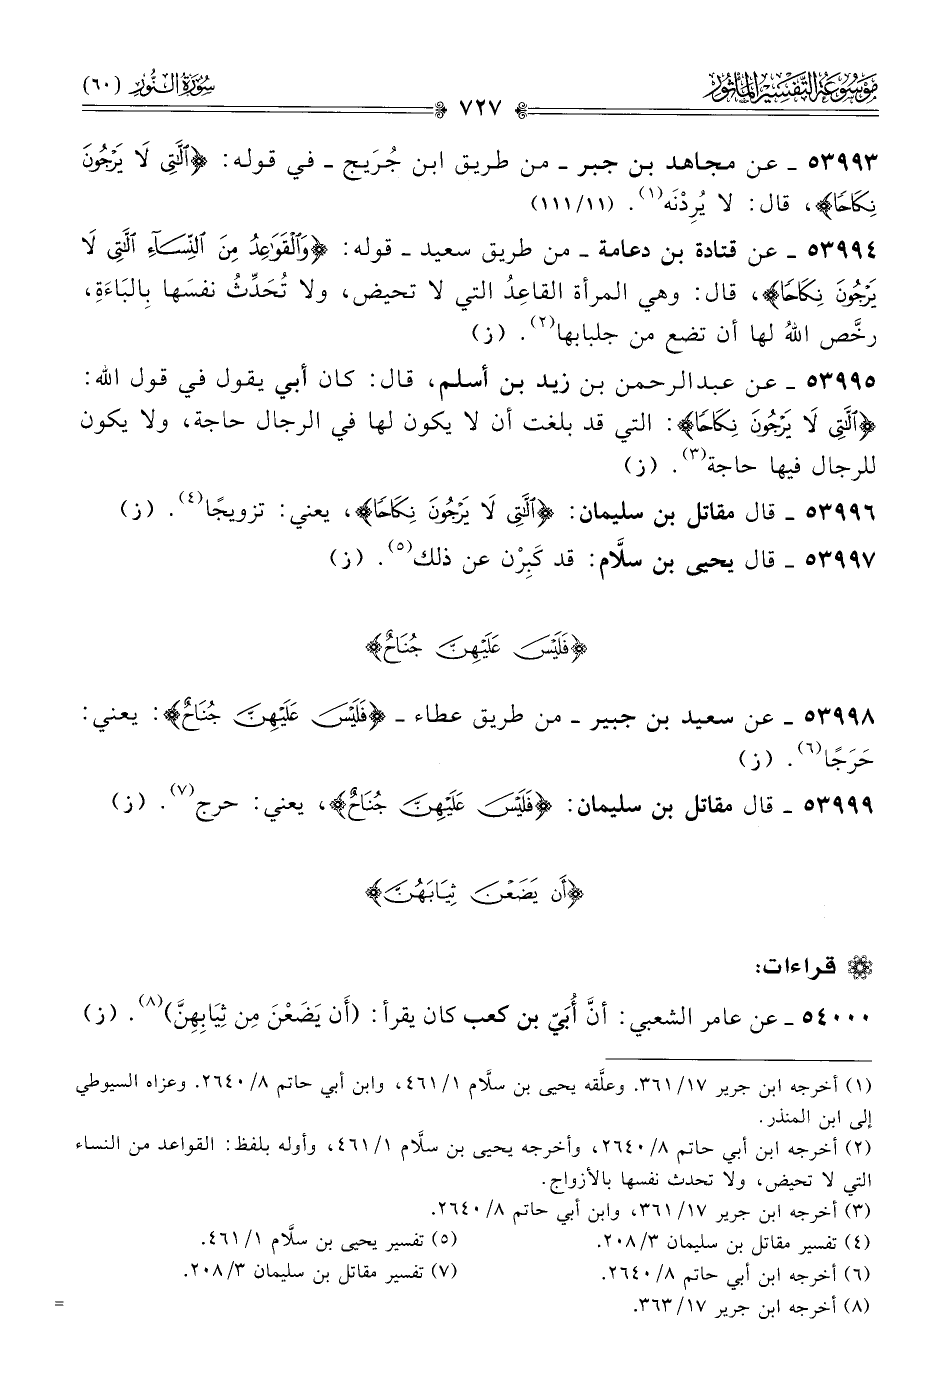 موسوعة التفسير المأثور
سورة النور (٦٠)
٧٢٧
٥٣٩٩٣ ـ عن مجاهد بن جبر ـ من طريق ابن جُرَيج ـ في قوله: ﴿ٱلَّٰتِي لَا يَرۡجُونَ
نِكَاحٗا﴾، قال: لا يُرِدْنَه(١). (١١/١١١)
٥٣٩٩٤ ـ عن قتادة بن دعامة ـ من طريق سعيد ـ قوله: ﴿وَٱلۡقَوَٰعِدُ مِنَ ٱلنِّسَآءِ ٱلَّٰتِي لَا
يَرۡجُونَ نِكَاحٗا﴾، قال: وهي المرأة القاعِدُ التي لا تحيض، ولا تُحَدِّثُ نفسَها بِالبَاءَةِ،
رخَّص اللهُ لها أن تضع من جلبابها(٢). (ز)
٥٣٩٩٥ ـ عن عبدالرحمن بن زيد بن أسلم، قال: كان أبي يقول في قول الله:
﴿ٱلَّٰتِي لَا يَرۡجُونَ نِكَاحٗا﴾: التي قد بلغت أن لا يكون لها في الرجال حاجة، ولا يكون
للرجال فيها حاجة(٣). (ز)
٥٣٩٩٦ ـ قال مقاتل بن سليمان: ﴿ٱلَّٰتِي لَا يَرۡجُونَ نِكَاحٗا﴾، يعني: تزويجًا(٤). (ز)
٥٣٩٩٧ ـ قال يحيى بن سلَّام: قد كَبِرْن عن ذلك(٥). (ز)
﴿فَلَيۡسَ عَلَيۡهِنَّ جُنَاحٌ﴾
٥٣٩٩٨ ـ عن سعيد بن جبير ـ من طريق عطاء ـ ﴿فَلَيۡسَ عَلَيۡهِنَّ جُنَاحٌ﴾: يعني:
حَرَجًا(٦). (ز)
٥٣٩٩٩ ـ قال مقاتل بن سليمان: ﴿فَلَيۡسَ عَلَيۡهِنَّ جُنَاحٌ﴾، يعني: حرج(٧). (ز)
﴿أَن يَضَعۡنَ ثِيَابَهُنَّ﴾
قراءات:
٥٤٠٠٠ ـ عن عامر الشعبي: أنَّ أُبَيّ بن كعب كان يقرأ: (أَن يَضَعْنَ مِن ثِيَابِهِنَّ)(٨). (ز)
(١) أخرجه ابن جرير ١٧/ ٣٦١. وعلَّقه يحيى بن سلَّام ١/ ٤٦١، وابن أبي حاتم ٨/ ٢٦٤٠. وعزاه السيوطي
إلى ابن المنذر.
(٢) أخرجه ابن أبي حاتم ٨/ ٢٦٤٠، وأخرجه يحيى بن سلَّام ١/ ٤٦١، وأوله بلفظ: القواعد من النساء
التي لا تحيض، ولا تحدث نفسها بالأزواج.
(٣) أخرجه ابن جرير ١٧/ ٣٦١، وابن أبي حاتم ٨/ ٢٦٤٠.
(٤) تفسير مقاتل بن سليمان ٣/ ٢٠٨.
(٥) تفسير يحيى بن سلَّام ١/ ٤٦١.
(٦) أخرجه ابن أبي حاتم ٨/ ٢٦٤٠.
(٧) تفسير مقاتل بن سليمان ٣/ ٢٠٨.
(٨) أخرجه ابن جرير ١٧/ ٣٦٣.
=